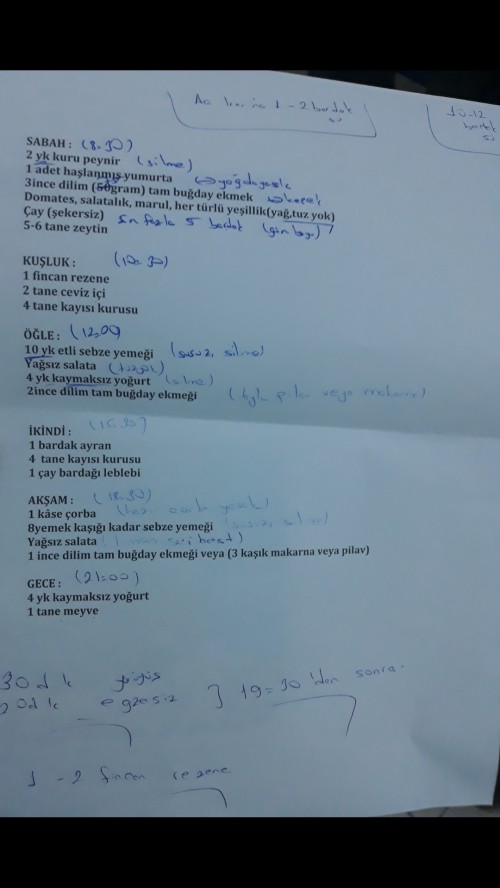 Aç karnına 1-2 bardak su
10-12 bardak su
SABAH : (8.30)
2 yk kuru peynir (silme)
1 adet haşlanmış yumurta → yağda yasak
3ince dilim (50gram) tam buğday ekmek → kepek
Domates, salatalık, marul, her türlü yeşillik(yağ,tuz yok)
Çay (şekersiz) En fazla 5 bardak (gün boyu)
5-6 tane zeytin
KUŞLUK : (10.30)
1 fincan rezene
2 tane ceviz içi
4 tane kayısı kurusu
ÖĞLE : (12.00)
10 yk etli sebze yemeği (susuz, silme)
Yağsız salata
4 yk kaymaksız yoğurt (silme)
2ince dilim tam buğday ekmeği
İKİNDİ :
1 bardak ayran
4 tane kayısı kurusu
1 çay bardağı leblebi
AKŞAM : (18.30)
1 kâse çorba
8yemek kaşığı kadar sebze yemeği (susuz, silme)
Yağsız salata
1 ince dilim tam buğday ekmeği veya (3 kaşık makarna veya pilav)
GECE : (21.00)
4 yk kaymaksız yoğurt
1 tane meyve
30 dk yürüyüş
20 dk egzersiz } 19:30'dan sonra.
1-2 fincan rezene